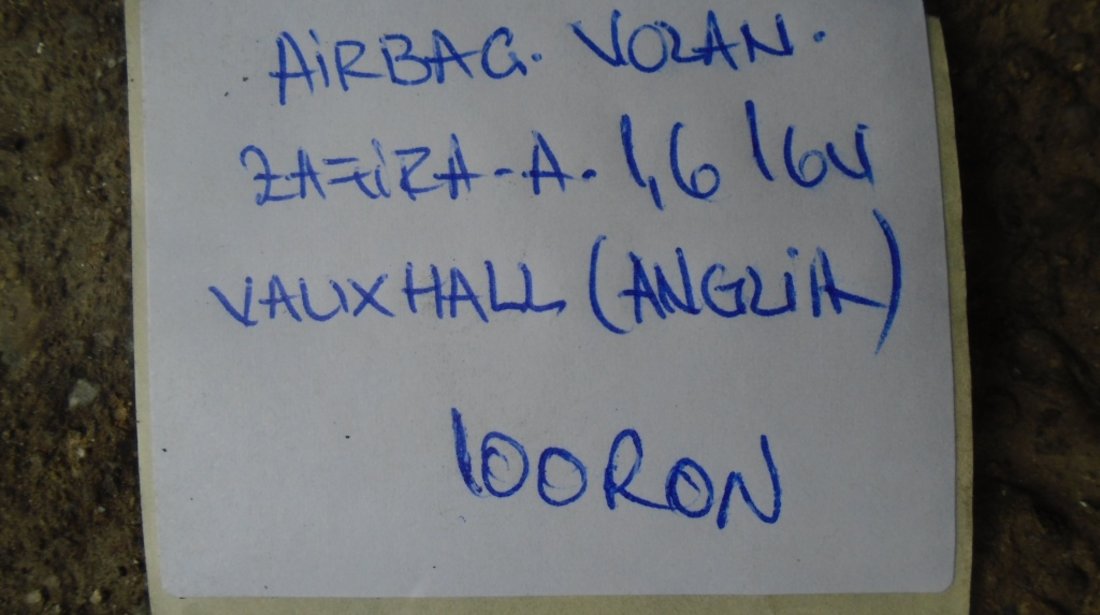 AiRBAG. VOLAN.
ZAFiRA-A. 1,6 16V
VAUXHALL (ANGLiA)
100RON